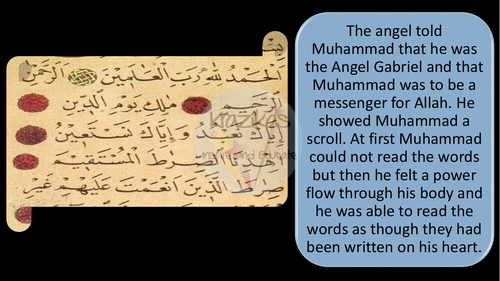 اَلْحَمْدُ لِلّٰهِ رَبِّ الْعَلَمِينَ الرَّحْمٰنِ
الرَّحِيمِ مَلِكِ يَوْمِ الدِّينِ
إِيَّاكَ نَعْبُدُ وَإِيَّاكَ نَسْتَعِينُ
اهْدِنَا الصِّرَاطَ الْمُسْتَقِيمَ
صِرَاطَ الَّذِينَ اَنْعَمْتَ عَلَيْهِمْ غَيْرِ
krazikas
The angel told
Muhammad that he was
the Angel Gabriel and that
Muhammad was to be a
messenger for Allah. He
showed Muhammad a
scroll. At first Muhammad
could not read the words
but then he felt a power
flow through his body and
he was able to read the
words as though they had
been written on his heart.